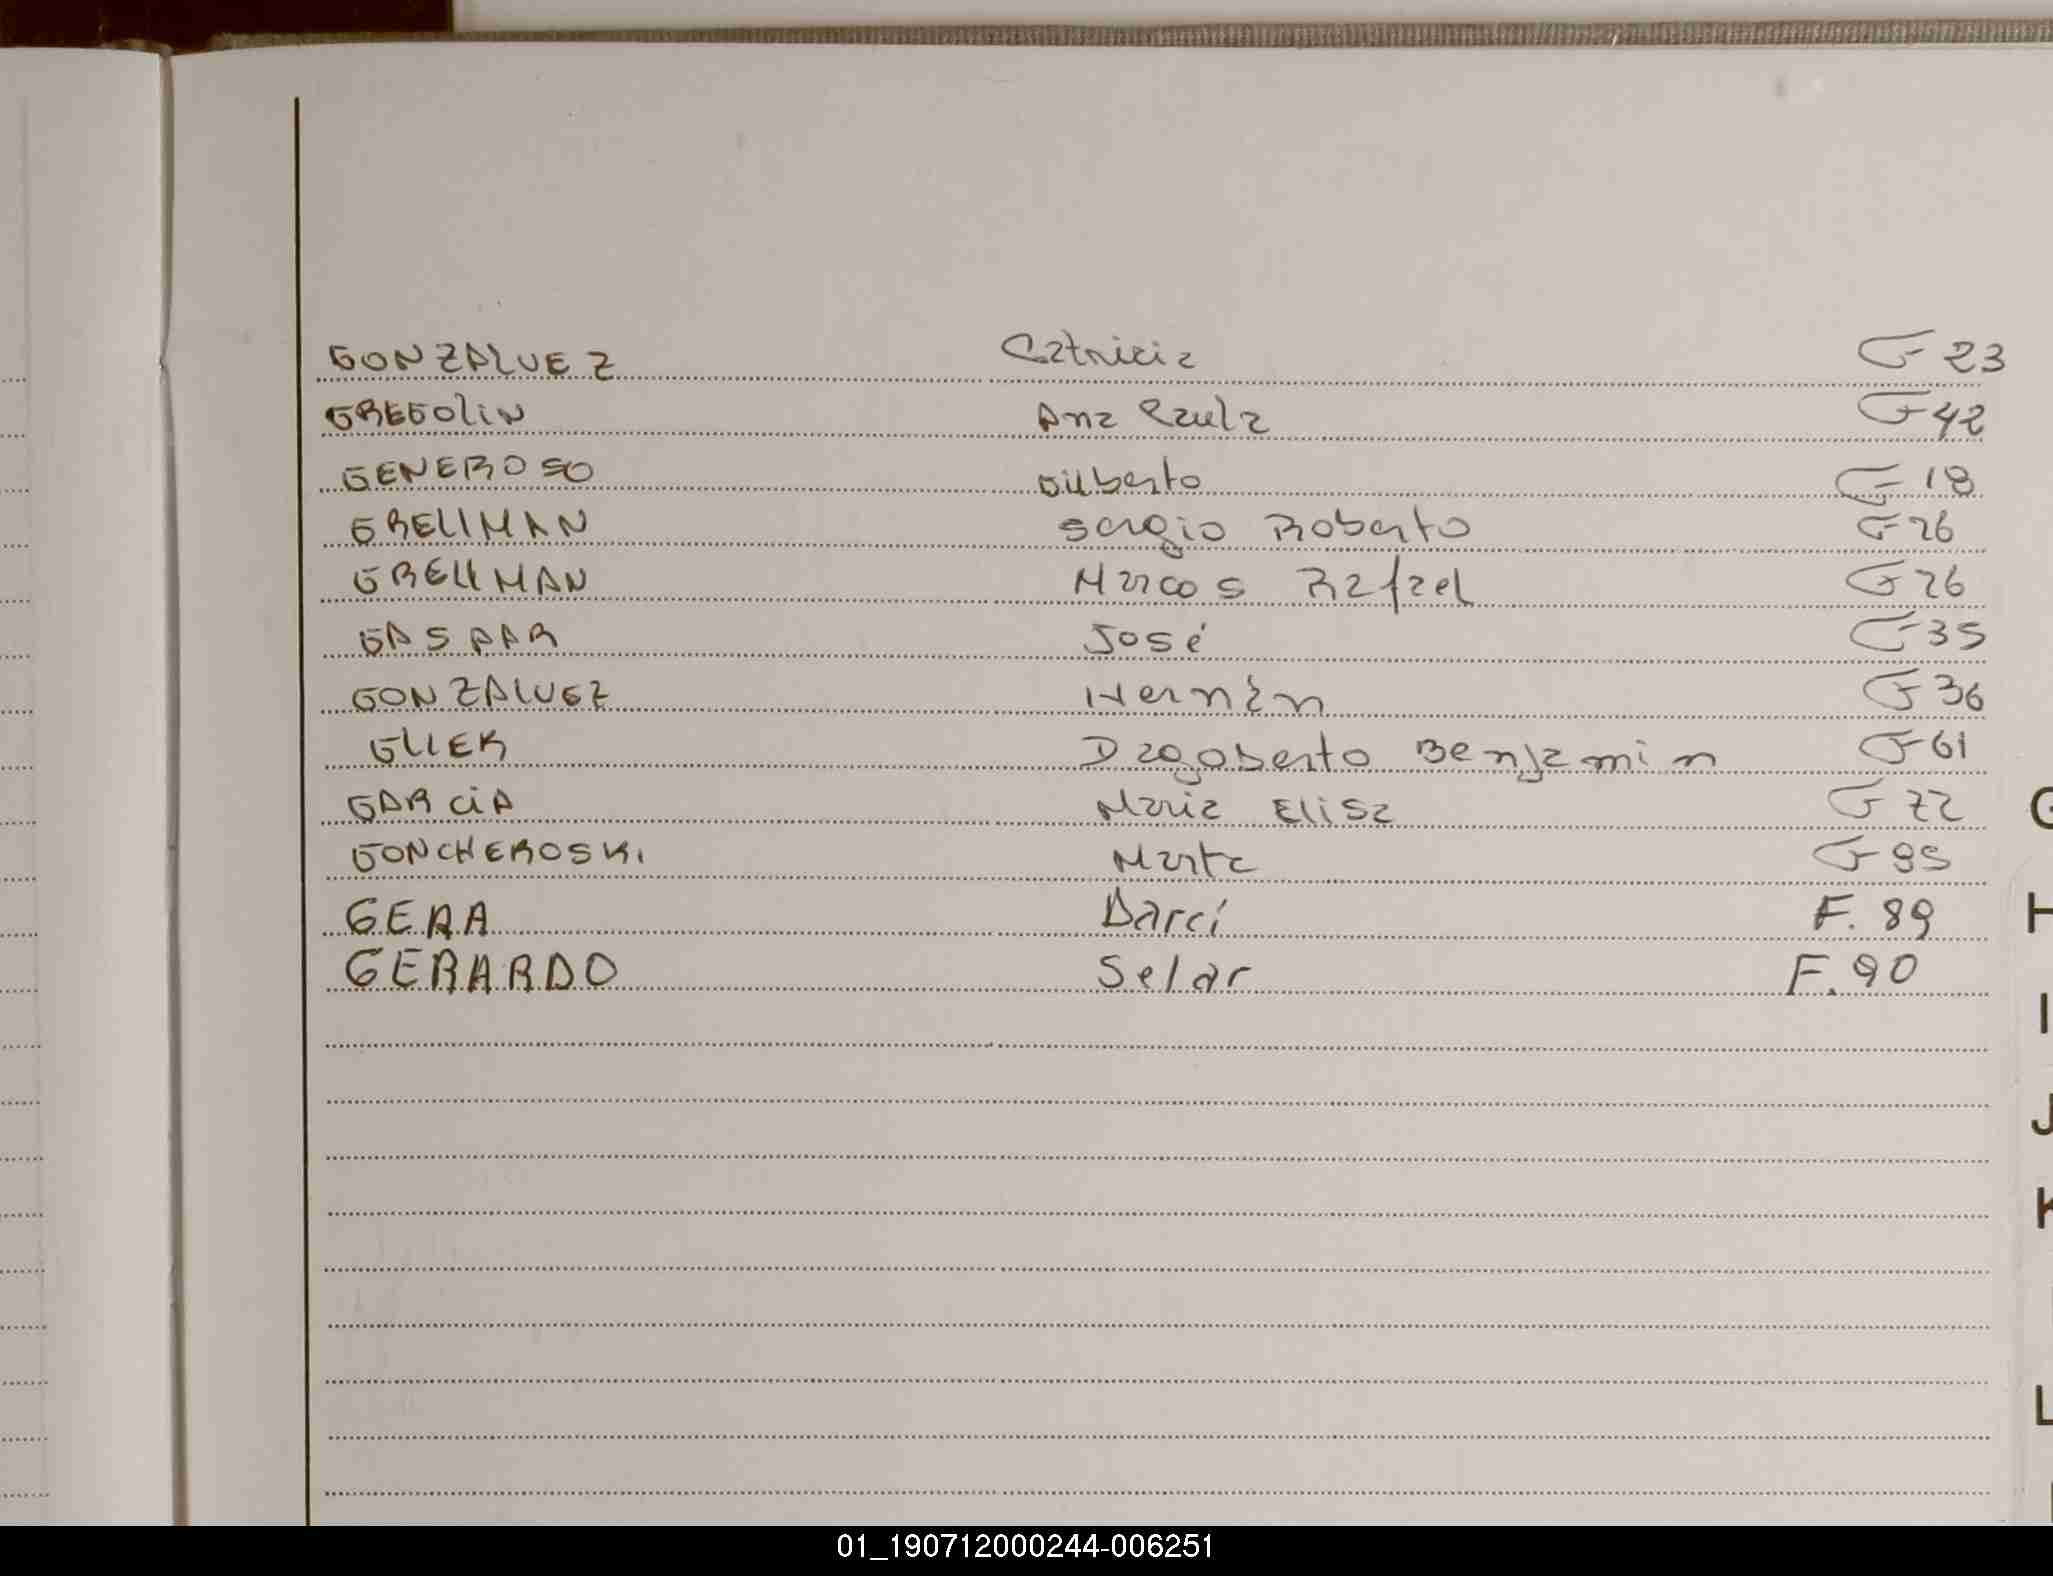 GONZALUEZ Patricia F 23
GREGOLIN Ana Paula F 42
GENEROSO Gilberto F 18
GRELLMAN Sergio Roberto F 26
GRELLMAN Marcos Rafael F 26
GASPAR José F 35
GONZALUEZ Hernán F 36
GLIER Dagoberto Benjamin F 61
GARCIA Maria Elisa F 72
GONCHEROSKI Marta F 95
GERA Darci F. 89
GERARDO Selar F. 90
G
H
I
J
K
L
01_190712000244-006251